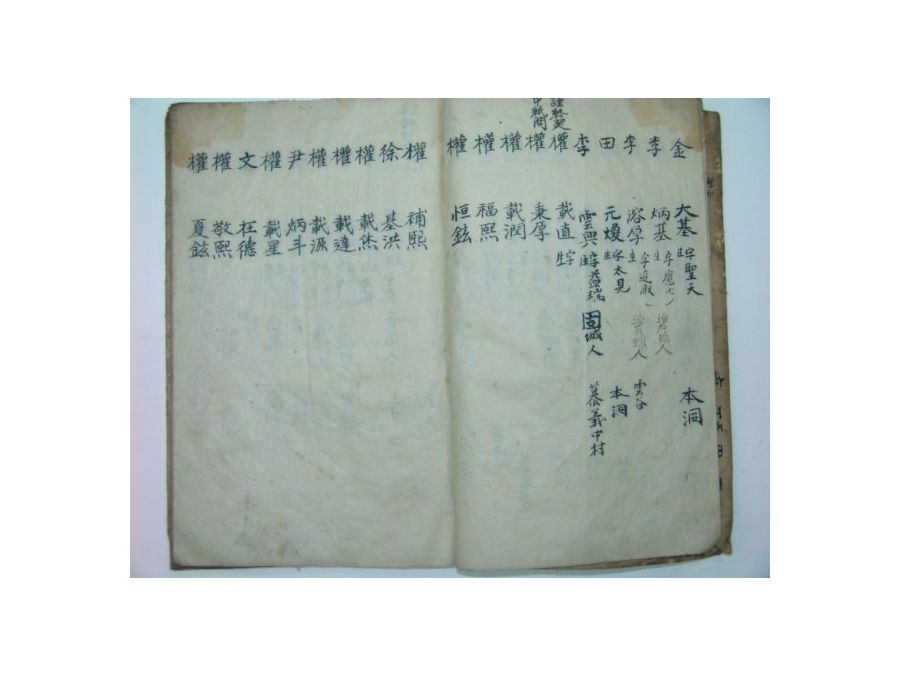 金 大基 字聖天 生 本洞
李 炳基 字應七 生 碧珍人
李 溶厚 生 碧珍人 雲谷
田 元煥 字太見 生 本洞
李 雲興 字益瑞 生 固城人 慕義中村
權 載直 字 生
權 秉厚
權 載潤
權 福熙
權 恒鉉
權 補熙
徐 基洪
權 載烋
權 載達
權 載源
尹 炳斗
權 載星
文 在德
權 敬熙
權 夏鉉